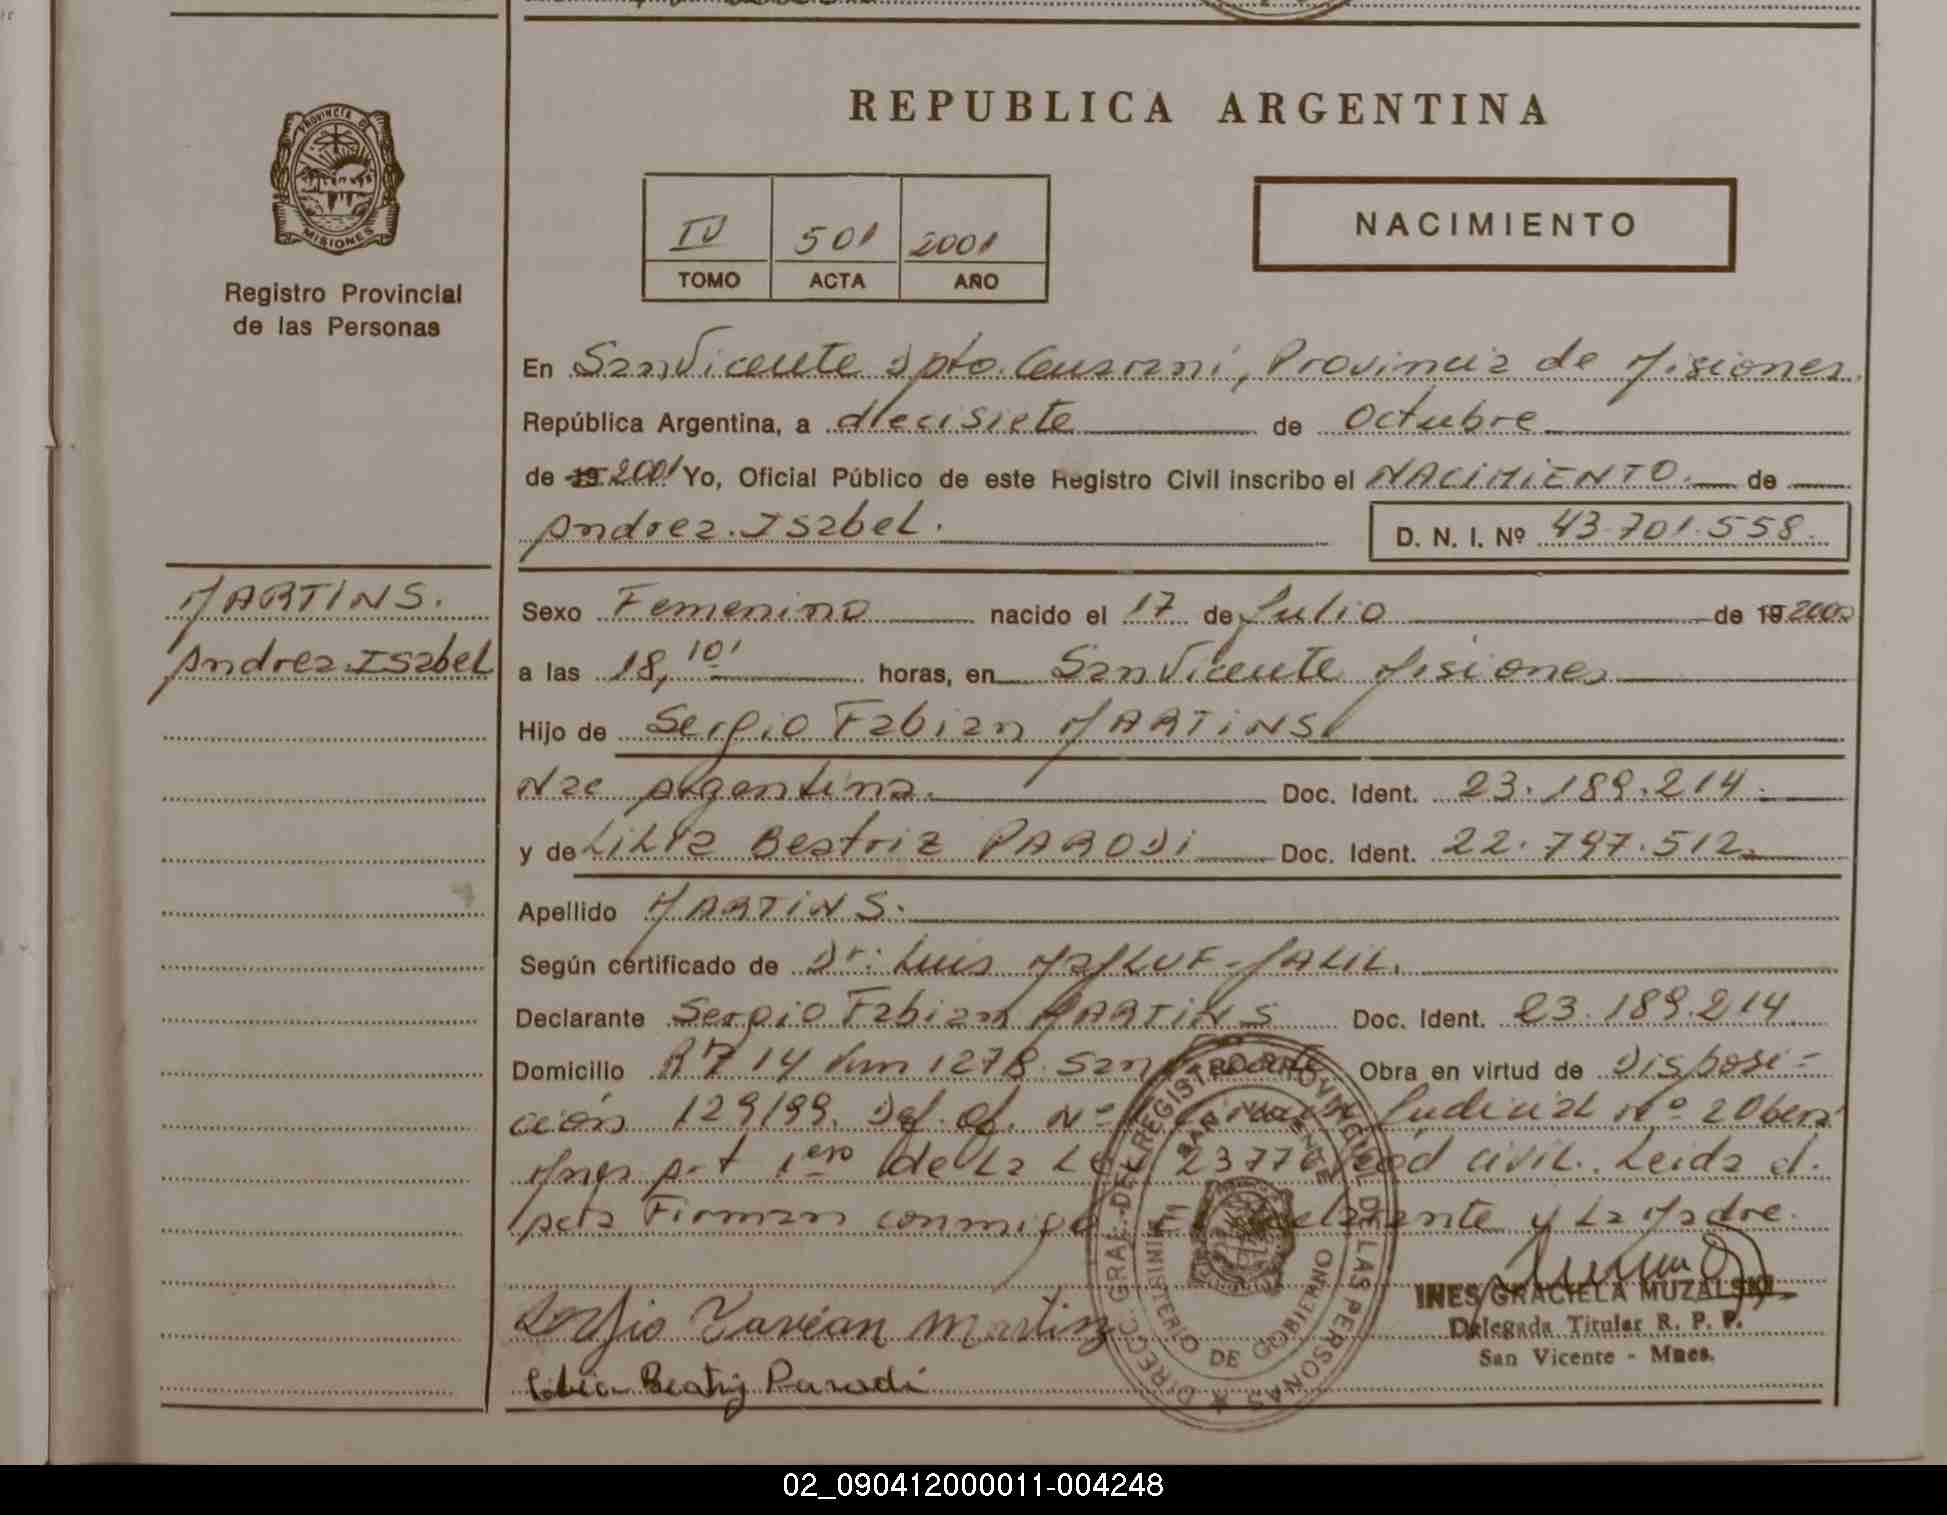 REPUBLICA ARGENTINA
PROVINCIA DE MISIONES
Registro Provincial
de las Personas
IV 501 2001
TOMO ACTA AÑO
NACIMIENTO
En San Vicente Dpto. Guaraní, Provincia de Misiones.
República Argentina, a diecisiete de Octubre
de 19 2001 Yo, Oficial Público de este Registro Civil inscribo el NACIMIENTO de
Andrea Isabel. D. N. I. Nº 43.701.558
MARTINS.
Andrea Isabel
Sexo Femenino nacido el 17 de Julio de 19 2000
a las 18,10' horas, en San Vicente Misiones
Hijo de Sergio Fabian MARTINS
Nac Argentina. Doc. Ident. 23.189.214
y de Lilia Beatriz PARODI Doc. Ident. 22.797.512
Apellido MARTINS.
Según certificado de Dr: Luis
Declarante Sergio Fabian MARTINS Doc. Ident. 23.189.214
Domicilio 14 Km 1278 San Vicente Obra en virtud de Disposi-
ción 129/99. Judicial Nº 2 Oberá
Mnes 1ero de La Ley Cód civil. Leida el
acta Firman conmigo El Declarante y La Madre.
Sergio Favéan Martins
Beatriz Parodi
DIRECC. GRAL. DEL REGISTRO PROVINCIAL DE LAS PERSONAS
SAN VICENTE
MINISTERIO DE GOBIERNO
INES GRACIELA MUZALSKI
Delegada Titular R. P. P.
San Vicente - Mnes.
02_090412000011-004248